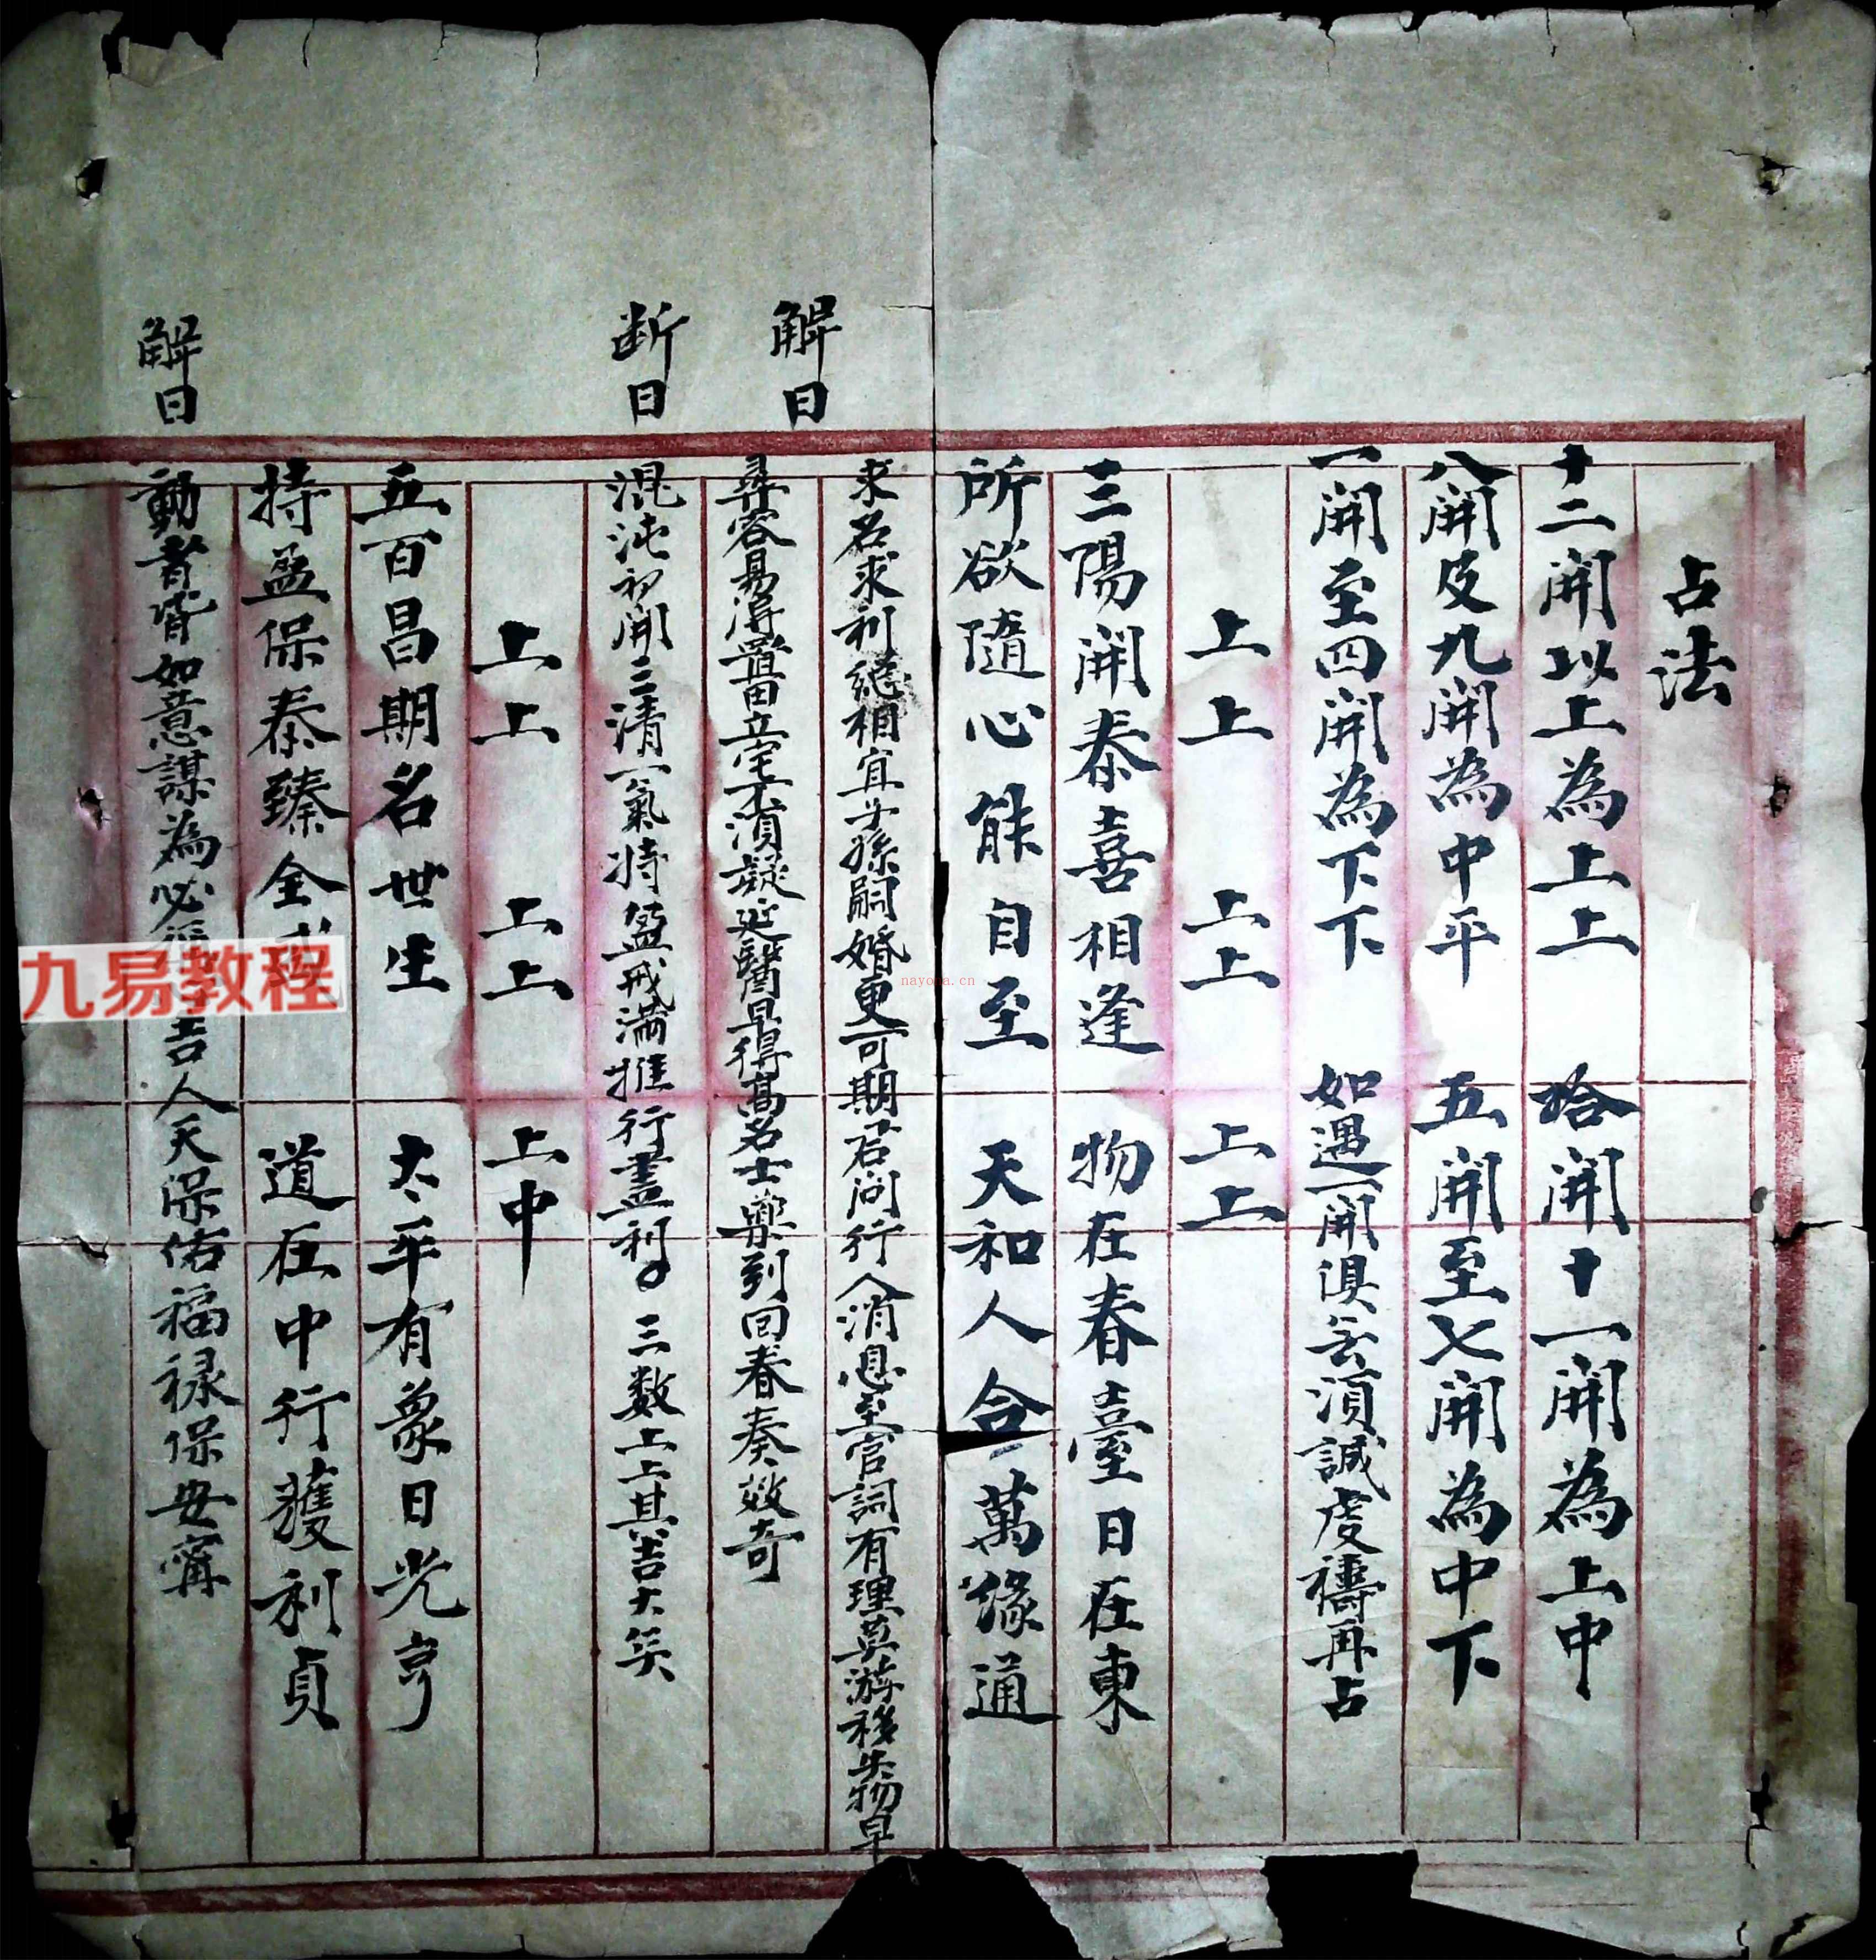 占法
十二開以上為上上　拾開十一開為上中
八開及九開為中平　五開至七開為中下
一開至四開為下下　如遇一開俱無須誠虔禱再占
上上　上上　上上
三陽開泰喜相逢　物在春臺日在東
所欲隨心能自至　天和人合萬緣通
解曰
求名求利總相宜子孫嗣婚更可期若问行人消息至官詞有理莫游移失物早
尋容易得置田立宅不須疑延醫早得高名士藥到回春奏效奇
断曰
混沌初開三清一氣持盈戒滿推行盡利。三数上上其吉大矣
上上　上上　上中
五百昌期名世生　太平有象日光亨
持盈保泰臻全　道在中行獲利貞
解曰
動者皆如意謀為必吉人天保佑福禄保安寗
九易教程
nayona.cn